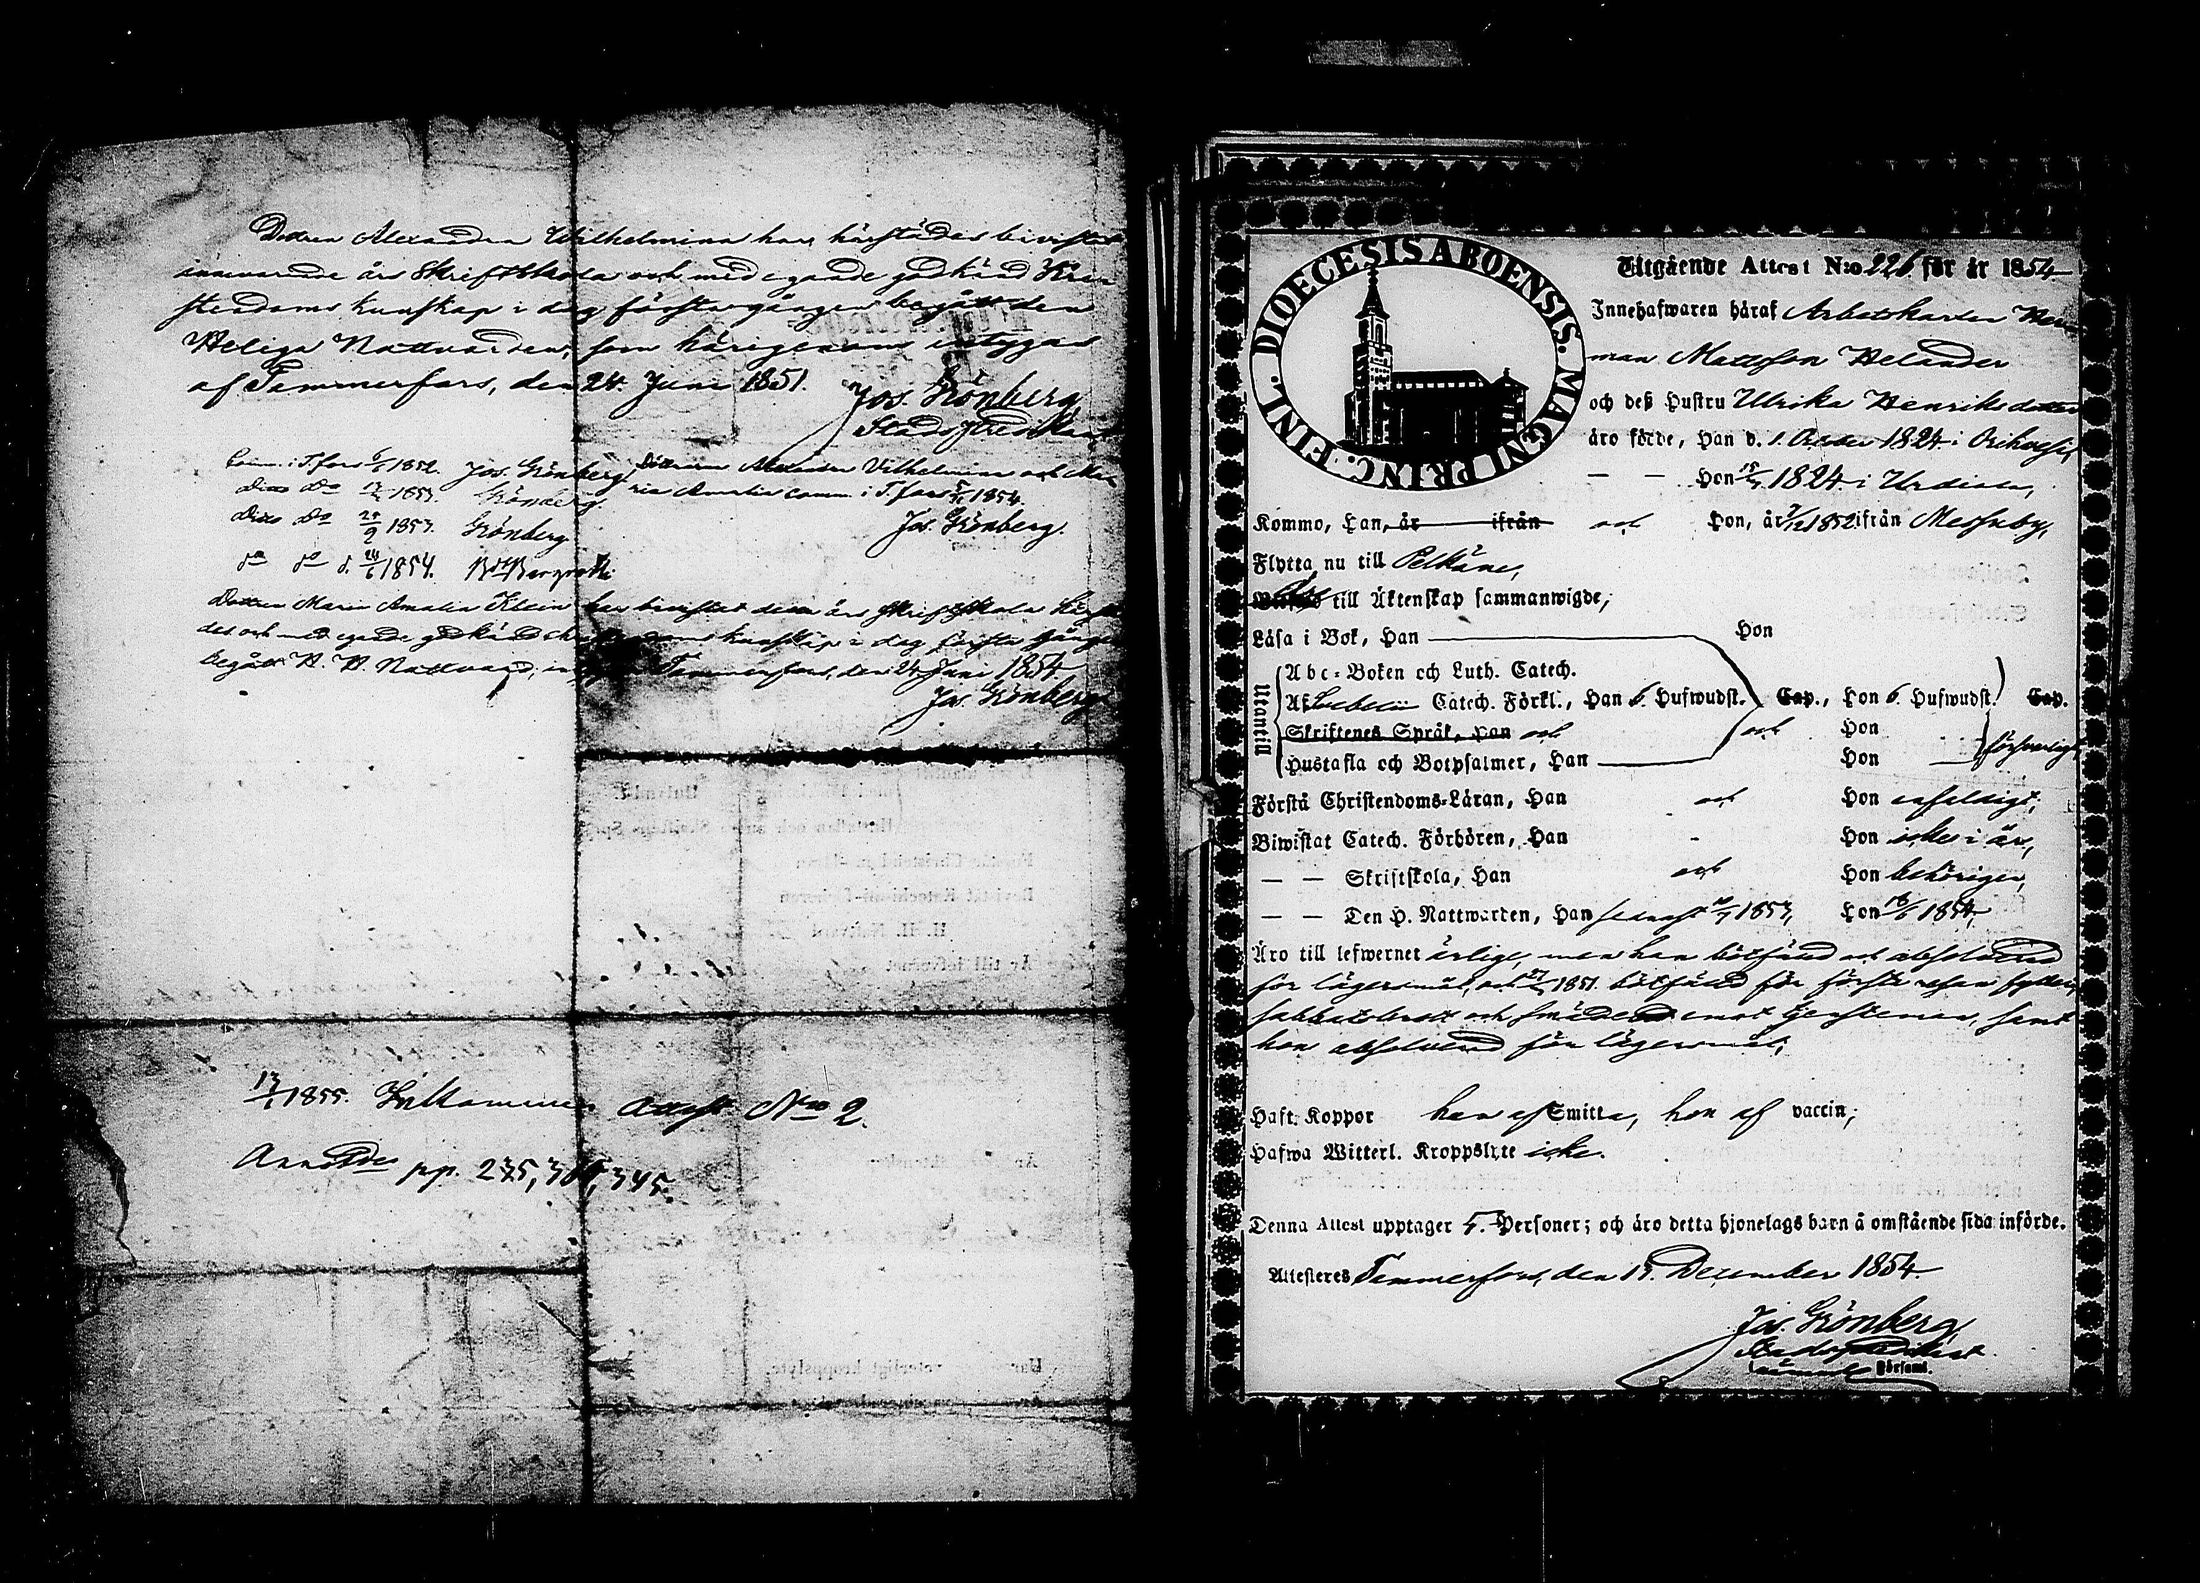 Dottren Alexandra Wilhelmina har härstädes bevistat
innevarande års Skriftskola och med egande godkänd Kri-
stendoms kunskap i dag första gången begått den
Heliga Nattvarden, som härigenom intygas
af Tammerfors, den 24. Juni 1851.
Jos. Grönberg
Stadspredikant
Comm. i T.fors 1852. Jos. Grönberg.
Ditto do 1853. Grönberg.
Ditto do 25/9 1853. Grönberg
do do d. 24/6 1854.
Döttrarne Alexandra Vilhelmina och Ma-
ria Amalia comm. i T.fors 1854.
Jos. Grönberg.
Dottren Maria Amalia Klein har bevistat detta års Skriftskola härstä-
des och med egande godkänd christendoms kunskap i dag första gången
begått H. H. Nattvard, Tammerfors, den 24 Juni 1854.
Jos. Grönberg
1855. Inkommen Attest No 2.
pp. 235, 345.
FINL. DIOECESIS ABOENSIS. MAGNI PRINC.
Utgående Attest N:o 226 för år 1854
Innehafwaren häraf Arbetskarlen Her-
man Mattsson Helander
och deß Hustru Ulrika Henriksdotter
äro födde, Han d. 1. October 1824 i Orihvesi,
— — Hon 1824 i Urdiala,
Kommo, Han, är ifrån och Hon, är 1852 ifrån Messuby,
Flytta nu till Pelkäne,
till Äktenskap sammanwigde,
Läsa i Bok, Han Hon
Utantill
Abc-Boken och Luth. Catech.
Af Catech. Förkl., Han 6. Hufwudst. Cap., Hon 6. Hufwudst. Cap.
Skriftenes Språk, Han och och Hon
Hustafla och Botpsalmer, Han Hon försvarligt,
Förstå Christendoms-Läran, Han och Hon enfaldigt,
Biwistat Catech. Förhören, Han - Hon icke i år,
— — Skriftskola, Han och Hon behörigen,
— — Den H. Nattwarden, Han senast 1853, Hon 18/6 1854,
Äro till lefwernet ärlige, men han bötfäld och absolverad
för lägersmål, och 1851 bötfäld för första resan fylleri,
sabbatsbrott och emot tjensteman, samt
hon absolverad för lägersmål,
Haft Koppor han af Smitta, hon af vaccin;
Hafwa Witterl. Kroppslyte icke.
Denna Attest upptager 5. Personer; och äro detta hjonelags barn å omstående sida införde.
Attesteras Tammerfors, den 15. December 1854.
Jos. Grönberg,
Stadspredikant
Församl.